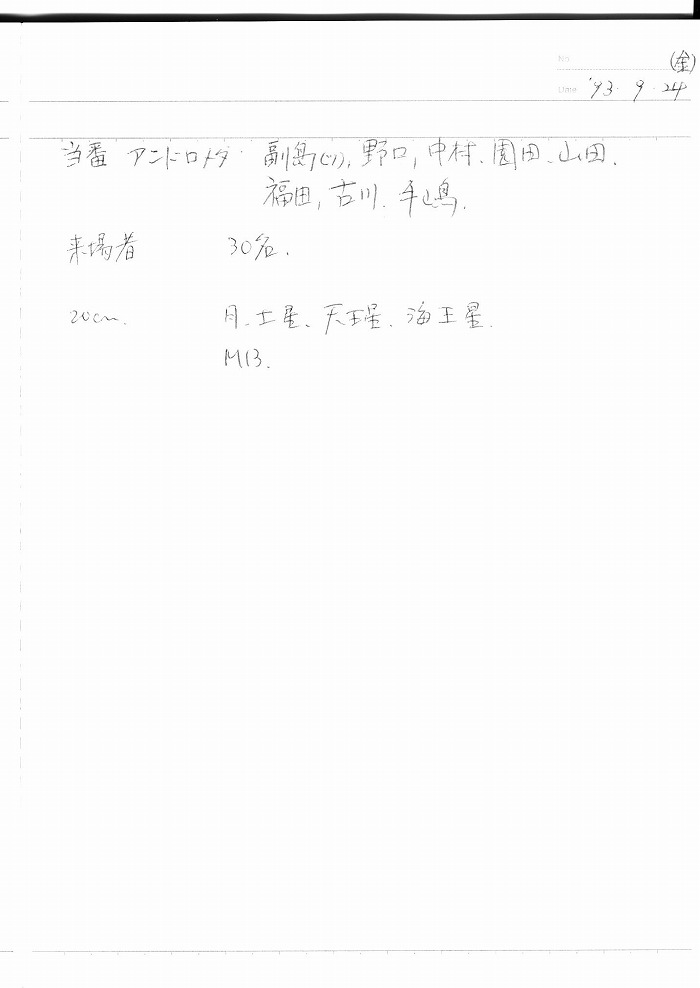 No (金)
Date '93. 9. 24
当番 アンドロメダ 副島(ツ), 野口, 中村、園田、山田.
福田, 古川. 手嶋.
来場者 30名.
20cm. 月、土星、天王星、海王星.
M13.